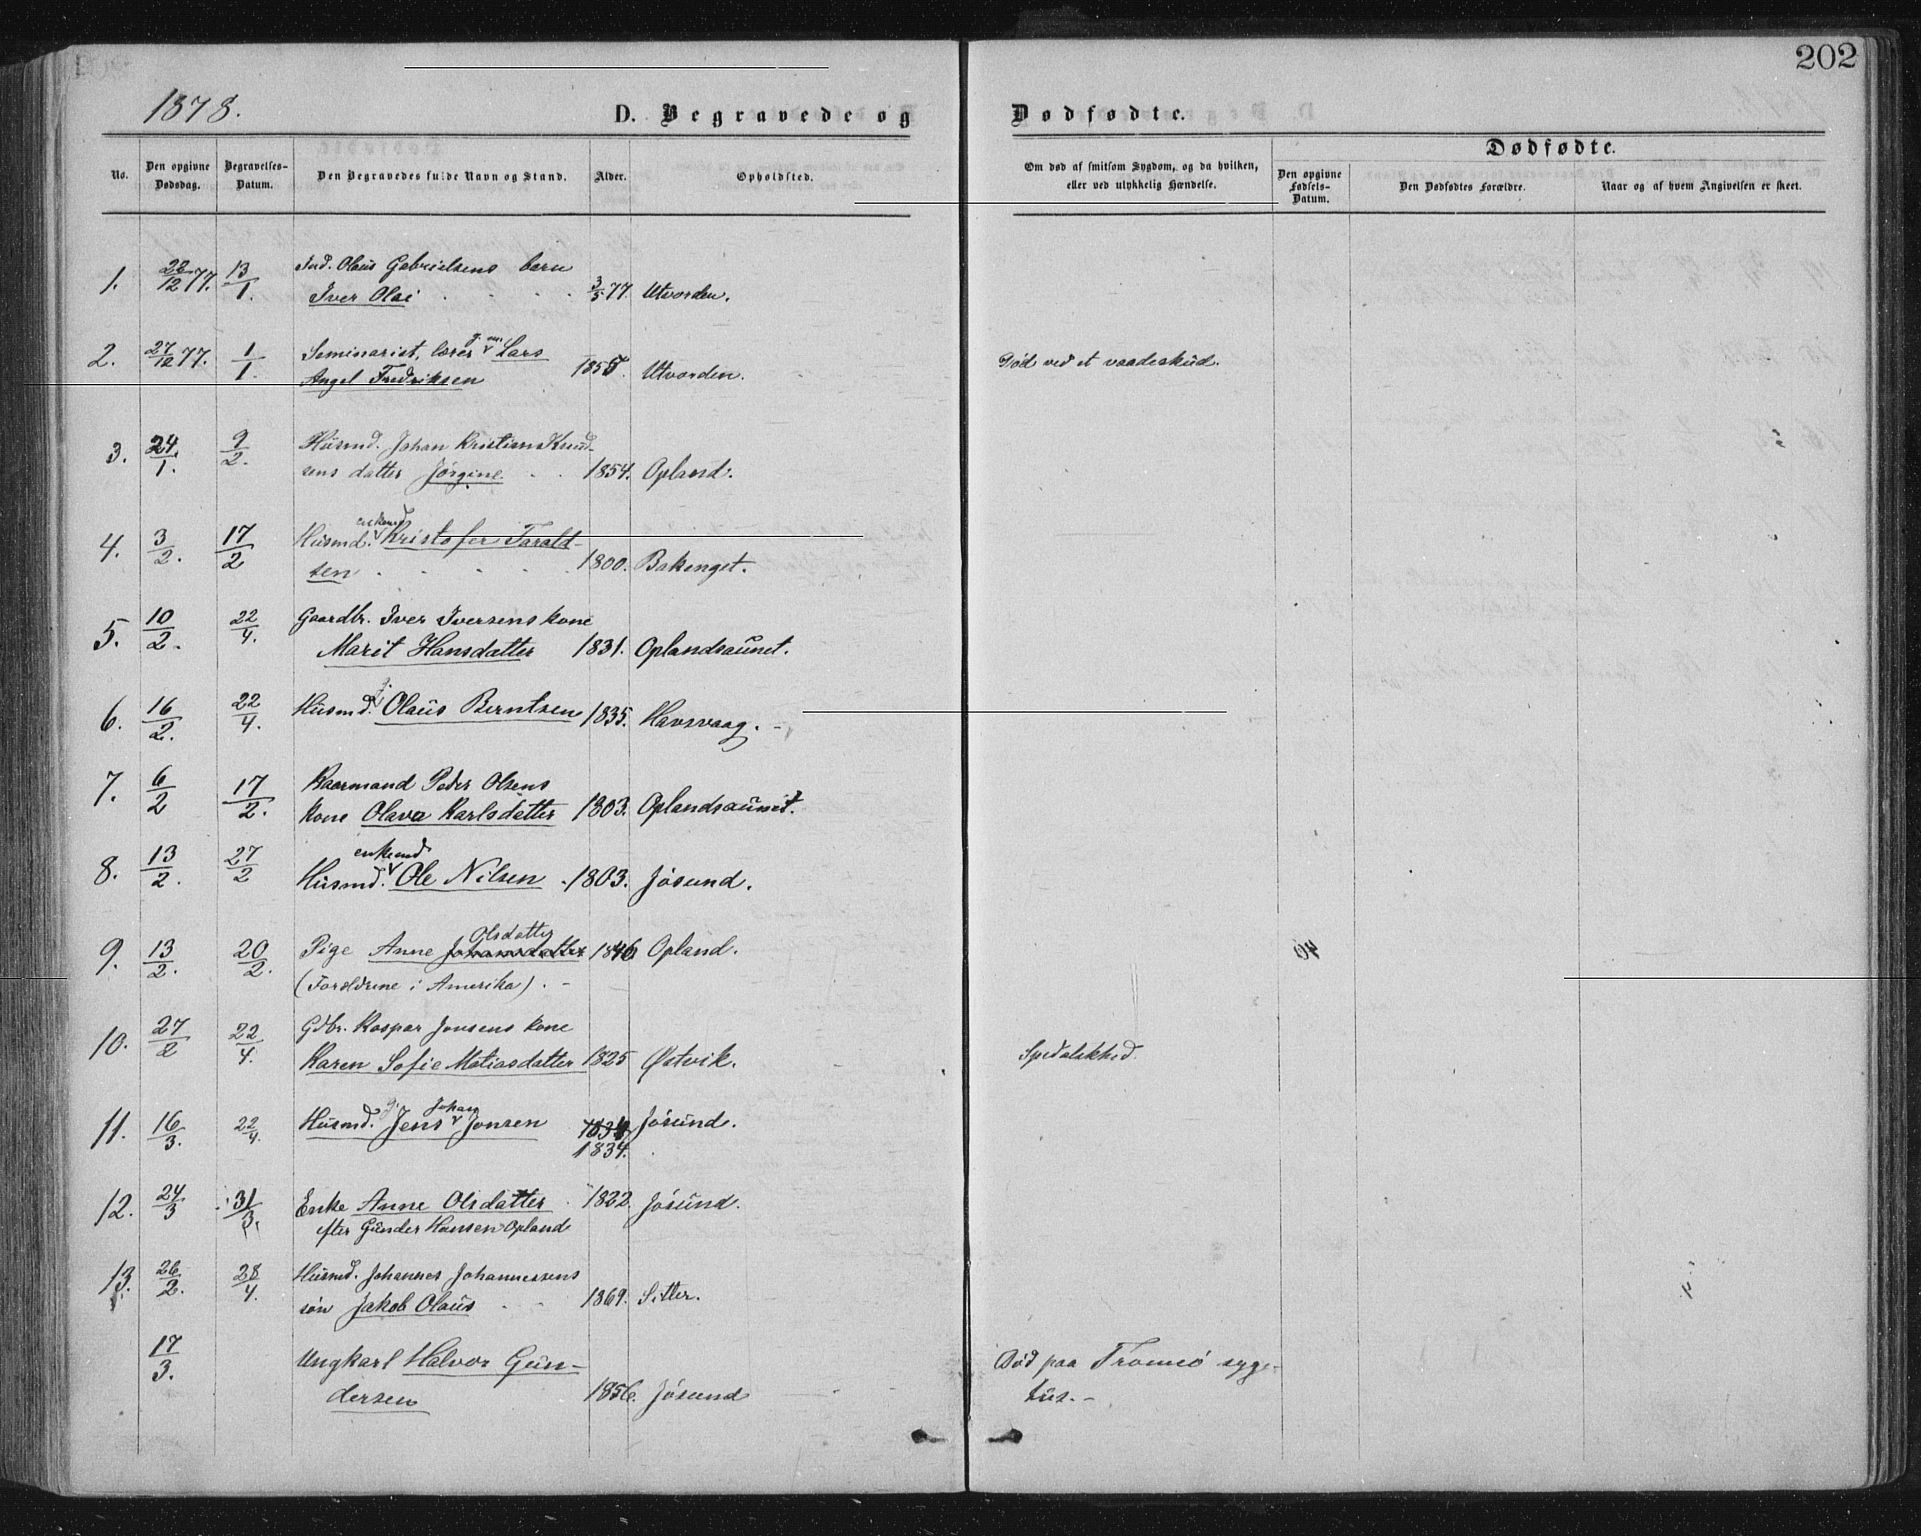 202
1878.
D. Begravede og Dødfødte.
Dødfødte.
No.
Den opgivne Dødsdag.
Begravelses-Datum.
Den Begravedes fulde Navn og Stand.
Alder.
Opholdsted.
Om død af smitsom Sygdom, og da hvilken, eller ved ulykkelig Hændelse.
Den opgivne Fødsels-Datum.
Den Dødfødtes Forældre.
Naar og af hvem Angivelsen er skeet.
1. 28/12 77. 13/1. Ind. Olaus Gabrielsens barn
Iver Olai 3/5 77 Utvorden.
2. 27/12 77. 1/1. Seminarist, lærer g. m. Lars
Angel Fredriksen 1855. Utvorden. Død ved et vaadeskud.
3. 24/1. 9/2. Husmd. Johan Kristian Knud-
sens datter Jørgine 1854. Opland.
4. 3/2. 17/2 Husmd. enkemd Kristofer Tarald-
sen 1800. Bakenget.
5. 10/2. 22/4. Gaardbr. Iver Iversens kone
Marit Hansdatter 1831. Oplandsaunet.
6. 16/2. 22/4. Husmd. g. Olaus Berntsen 1835. Havsvaag. -
7. 6/2 17/2. Kaarmand Peder Olsens
kone Olava Karlsdatter 1803. Oplandsaunet.
8. 13/2. 27/2 Husmd. enkemd Ole Nilsen 1803. Jøsund.
9. 13/2. 20/2. Pige Anne Johansdatter Olsdatter 1846 Opland.
(Forældrene i Amerika). -
10. 27/2 22/4. Gdbr. Kaspar Jonsens kone
Karen Sofie Matiasdatter 1825 Østvik. Spedalskhed.
11. 16/3. 22/4. Husmd. g. Jens Johan Jonsen 1834. Jøsund.
12. 24/3 31/3. Enke Anne Olsdatter 1822. Jøsund.
efter Gunder Hansen Opland
13. 26/2. 28/4. Husmd. Johannes Johannessens
søn Jakob Olaus 1869. Sitter.
17/3. Ungkarl Halvor Gun-
dersen 1856. Jøsund
Død paa Tromsø syge-
hus. -